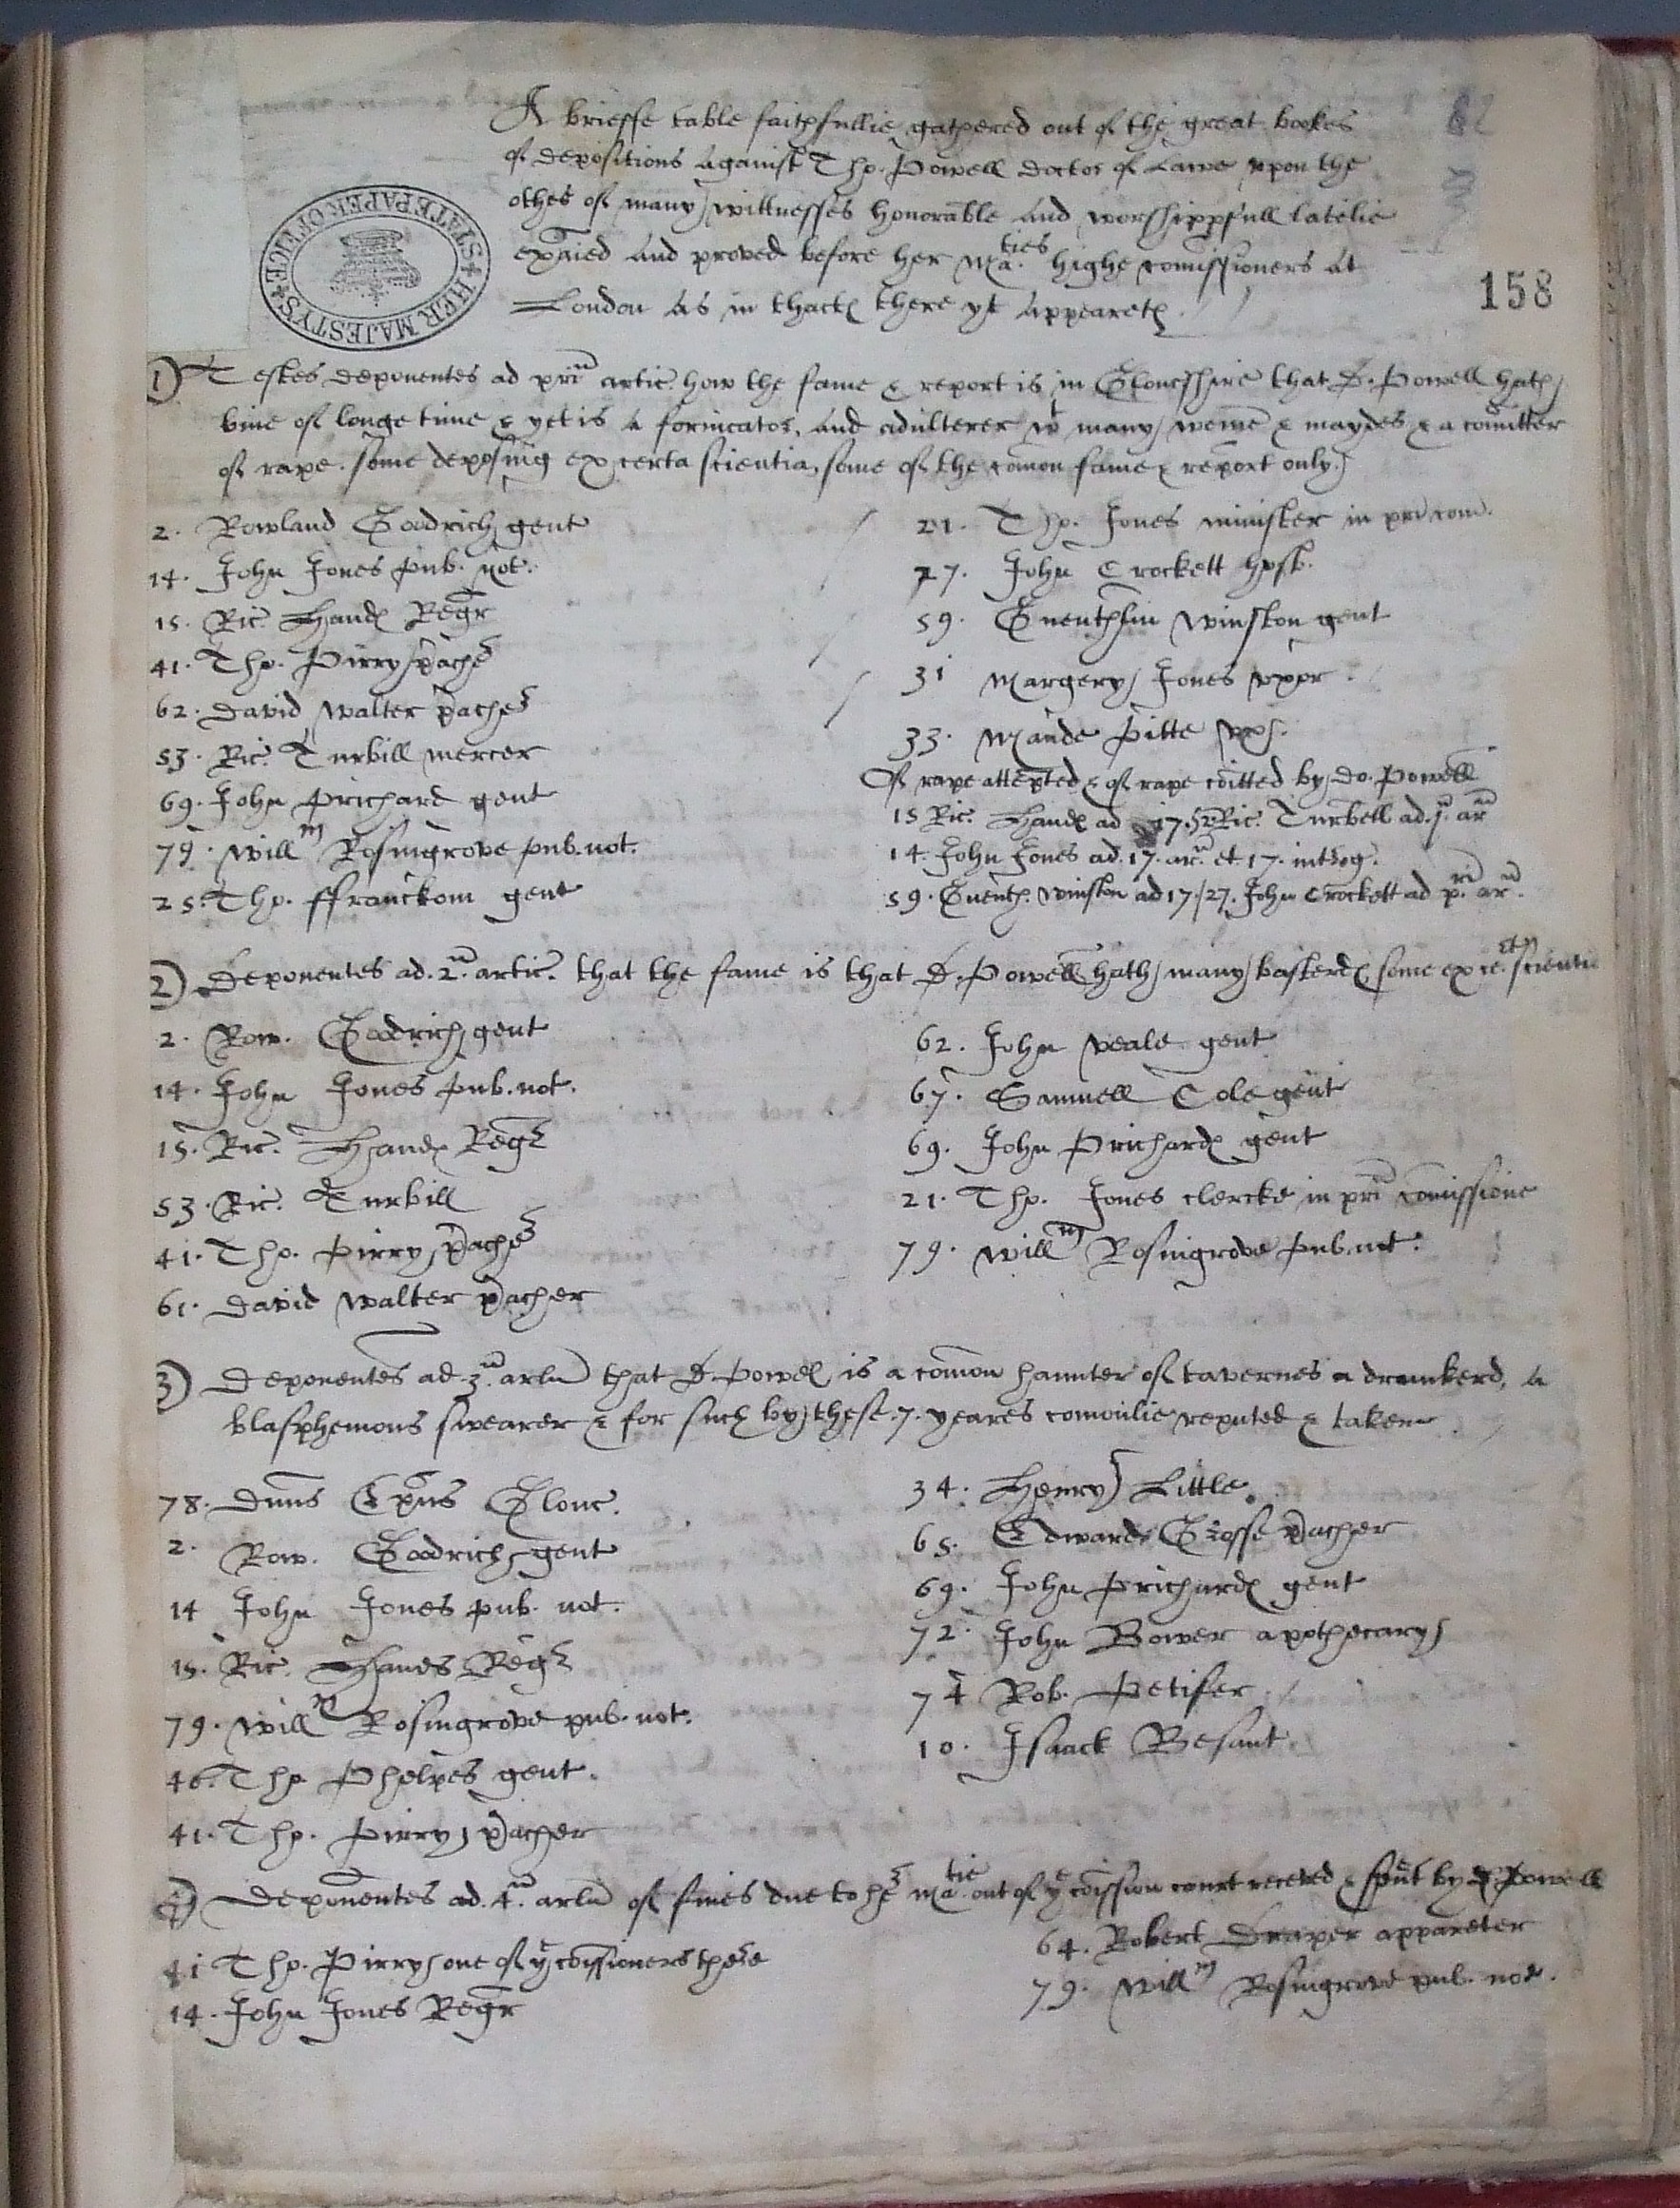 A brieffe table faithfullie gathered out of the great bookes
of depositions against Tho. Powell doctor of Lawe vpon the
othes of many wittnesses honorable and worshippfull latelie
exaied and proved before her Ma.ties highe comissioners at
London as in thact there yt appeareth.
STATE PAPER OFFICE
HER MAJESTY'S
158
1) Testes deponentes ad pri.u artic. how the fame & report is in Gloucshire that D. Powell hath
bine of longe time & yet is a fornicator, and adulterer wt many weme & maydes & a comitter
of rape. some deposing ex certa scientia, some of the comon fame & report only.
2. Rowland Goodrich gent
14. John Jones pub. not.
15. Ric. Hands Regr
41. Tho. Pirry pache
62. David Walter pache
53. Ric. Turbill mercer
69. John Prichard gent
79. Willm Rosingrove pub. not.
25. Tho. ffranckom gent
21. Tho. Jones minister in pri com.
27. John Crockett hosb.
59. Guenthlin Winston gent
31 Margery Jones vxor.
33. Maude Pitte vxs.
Of rape attepted & of rape coitted by Do. Powell
15 Ric. Hands ad 17. 53 Ric. Turbell ad. j.u aru
14. John Jones ad. 17. ar.u et 17. interog.
59. Guenth. Winston ad 17. / 27. John Crockett ad p.ri ar.u
2) Deponentes ad. 2.u artic. that the fame is that D. Powell hath many basterds some ex certa scientia
2. Row. Goodrich gent
14. John Jones pub. not.
15. Ric. Hands Regr
53. Ric. Turbill
41. Tho. Pirry pache
61. David Walter pacher
62. John Veale gent
67. Samuell Cole gent
69. John Prichard gent
21. Tho. Jones clercke in pri comissione
79. Willm Rosingrove pub. not.
3) Deponentes ad 3.u arlu that D. Powell is a comon haunter of tavernes a drunkerd, a
blasphemous swearer & for such by these .7. yeares comonlie reputed & taken
78. Dnus Epus Glouc.
2. Row. Goodrich gent
14 John Jones pub. not.
15. Ric. Hands Regr
79. Willm Rosingrove pub. not.
46. Tho Phelpes gent.
41. Tho. Pirry pacher
34. Henry Little.
65. Edward Grosse pacher
69. John Prichard gent
72. John Bower apothecary
74 Rob. Petifer
10. Isaack Besant.
4) Deponentes ad. 4.u arlu of fines due to he Ma.tie out of ye coission court receved & spet by D. Powell
41 Tho. Pirry one of ye coissioners there
14. John Jones Regr
64. Robert Draper appareter
79. Willm Rosingrove pub. not.